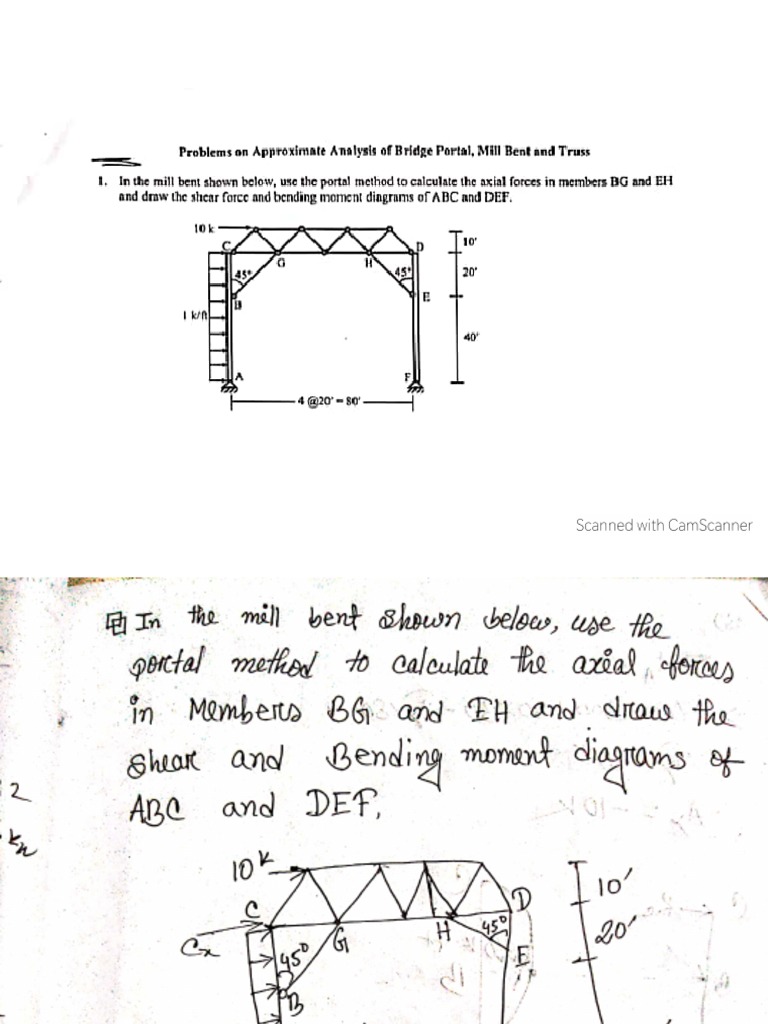 Problems on Approximate Analysis of Bridge Portal, Mill Bent and Truss
1. In the mill bent shown below, use the portal method to calculate the axial forces in members BG and EH
and draw the shear force and bending moment diagrams of ABC and DEF.
10 k
C
D
10'
G
H
45°
45°
20'
B
E
1 k/ft
40'
A
F
4 @20' = 80'
Scanned with CamScanner
In the mill bent shown below, use the
portal method to calculate the axial forces
in Members BG and EH and draw the
shear and Bending moment diagrams of
ABC and DEF,
2
10k
10'
C
D
Cx
G
H
45°
20'
45°
E
B